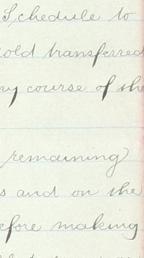 Schedule to
old transferred
ny course of the
remaining
s and on the
efore making